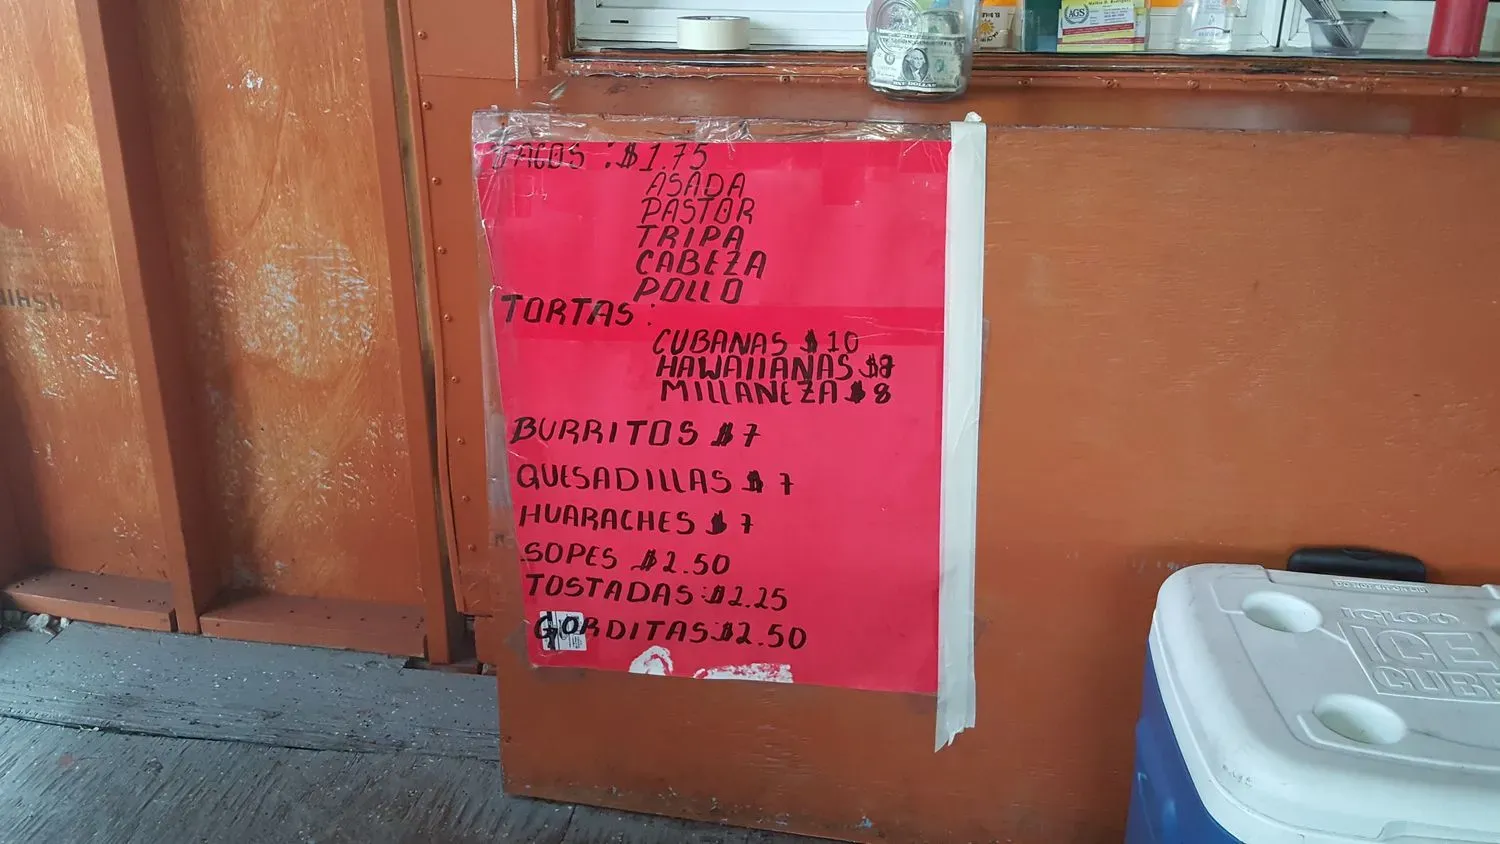 TACOS : $1.75
ASADA
PASTOR
TRIPA
CABEZA
POLLO
TORTAS :
CUBANAS $10
HAWAIIANAS $8
MILLANEZA $8
BURRITOS $7
QUESADILLAS $7
HUARACHES $7
SOPES $2.50
TOSTADAS: $2.25
GORDITAS: $2.50
AGS
IGLOO
ICE
CUBE